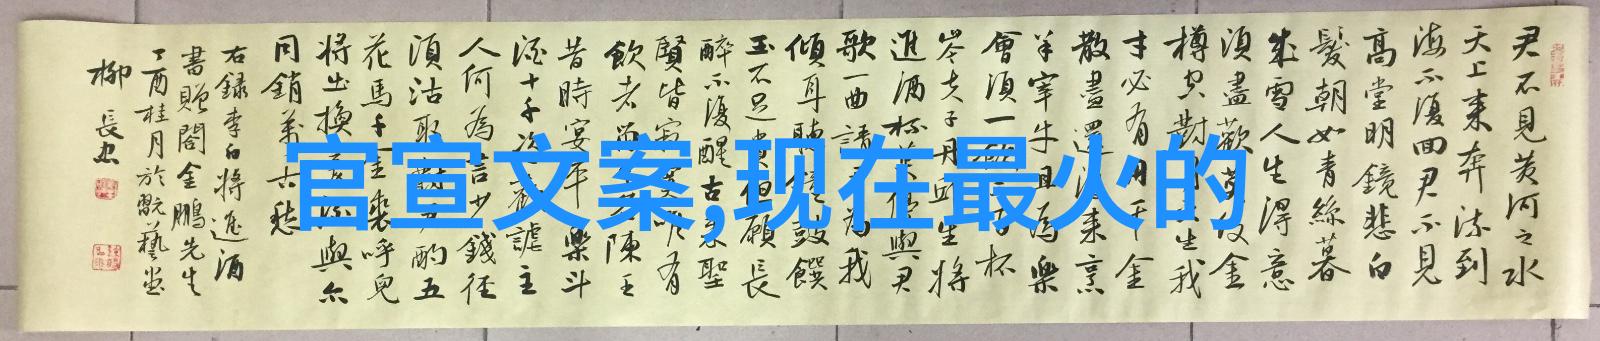 君不見黄河之水
天上来奔流到
海不復回君不見
高堂明鏡悲白
髮朝如青絲暮
成雪人生得意
須盡歡莫使金
樽空對月天生我
才必有用千金
散盡還復来烹
羊宰牛且為樂
會須一百杯
岑夫子丹丘生將
進酒杯莫停與君
歌一曲請君為我
傾耳聽鐘鼓饌
玉不足貴但願長
醉不復醒古来聖
賢皆寂寞唯有
飲者留名陳王
昔時宴平樂斗
酒十千恣歡謔主
人何為言少錢径
須沽取對君酌五
花馬千金裘呼兒
將出換美酒與尔
同銷萬古愁
右録李白將進酒
書贈閤金鵬先生
丁酉桂月於翫藝堂
柳長忠
官宣文案,现在最火的